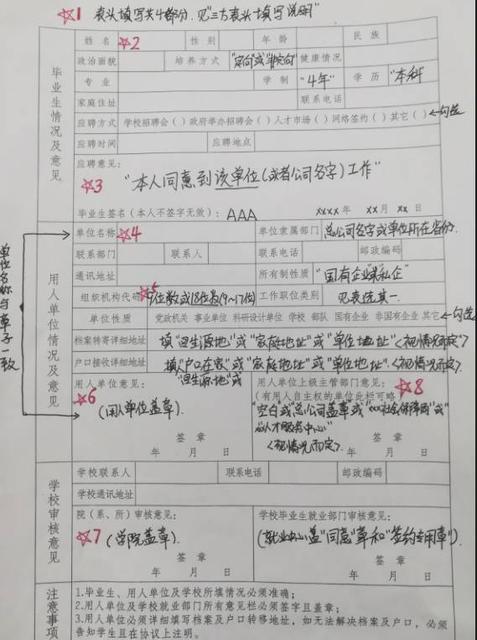 ☆1 表头填写共4部分.见"三方表头填写说明"
毕业生情况及意见
姓名 ☆2 性别 年龄 民族
政治面貌 培养方式 "定向"或"非定向" 健康情况
专业 学制 "4年" 学历 "本科"
家庭住址 联系电话
应聘方式 学校招聘会( )政府举办招聘会( )人才市场( )网络签约( )其它( ) 勾选
应聘时间 应聘地点
应聘意见:
☆3 "本人同意到该单位(或者公司名字)工作"
毕业生签名(本人不签字无效): AAA xxxx年 xx月 xx日
单位名称与章子一致
用人单位情况及意见
单位名称 ☆4 单位隶属部门 总公司名字或单位所在省份.
联系部门 联系人 联系电话 邮政编码
通讯地址 所有制性质 "国有企业"或"私企"
组织机构代码 ☆5 9位数或18位居(9~17位) 工作职位类别 见表选其一
单位性质 党政机关 事业单位 科研设计单位 学校 部队 国有企业 非国有企业 其它 勾选
档案转寄详细地址 填"生源地"或"家庭地址"或"单位地址"<视情况而定>
户口接收详细地址 填"户口在家"或"家庭地址"或"单位地址".<视情况而定>
"生源地"或
用人单位意见:
☆6
(用人单位盖章).
签章
年 月 日
用人单位上级主管部门意见:
(有用人自主权的单位此栏可略) ☆8
"空白或"总公司盖章或"xx社会保障局"或
"人才服务中心"
<视情况而定>.
签章
年 月 日
学校审核意见
学校联系人 联系电话 邮政编码
学校通讯地址
院(系、所)审核意见:
☆7 (学院盖章)
签章
年 月 日
学校毕业生就业部门审核意见:
(就业中心盖"同意"章和"签约专用章").
签章
年 月 日
注意事项
1.毕业生、用人单位及学校所填情况必须准确;
2.用人单位及学校就业部门所有意见栏必须签字且盖章;
3.用人单位必须详细填写档案及户口转移地址,如无法解决档案及户口,必须
告知学生且在协议上注明。